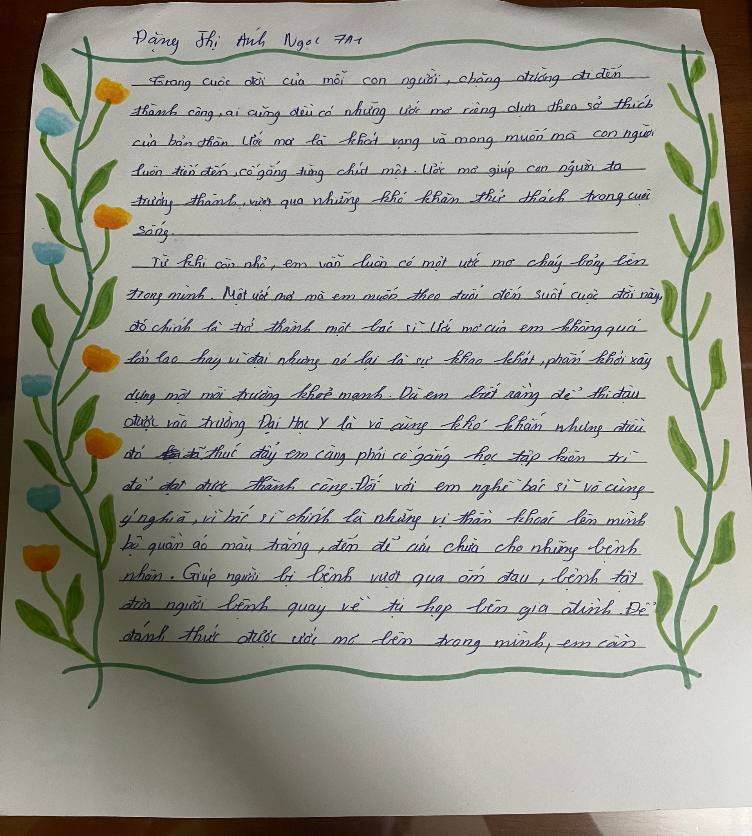 Đặng Thị Ánh Ngọc 7A1
Trong cuộc đời của mỗi con người, chặng đường đi đến
thành công, ai cũng đều có những ước mơ riêng dựa theo sở thích
của bản thân. Ước mơ là khát vọng và mong muốn mà con người
luôn tiến đến, cố gắng từng chút một. Ước mơ giúp con người ta
trưởng thành, vượt qua những khó khăn thử thách trong cuộc
sống.
Từ khi còn nhỏ, em vẫn luôn có một ước mơ cháy bỏng bên
trong mình. Một ước mơ mà em muốn theo đuổi đến suốt cuộc đời này,
đó chính là trở thành một bác sĩ. Ước mơ của em không quá
lớn lao hay vĩ đại nhưng nó lại là sự khao khát, phấn khởi xây
dựng một môi trường khoẻ mạnh. Dù em biết rằng để thi đậu
được vào trường Đại Học Y là vô cùng khó khăn nhưng điều
đó thúc đẩy em càng phải cố gắng học tập kiên trì
để đạt được thành công. Đối với em nghề bác sĩ vô cùng
ý nghĩa, vì bác sĩ chính là những vị thần khoác lên mình
bộ quần áo màu trắng, đến để cứu chữa cho những bệnh
nhân. Giúp người bị bệnh vượt qua ốm đau, bệnh tật
đưa người bệnh quay về tụ họp bên gia đình. Để
đánh thức được ước mơ bên trong mình, em cần